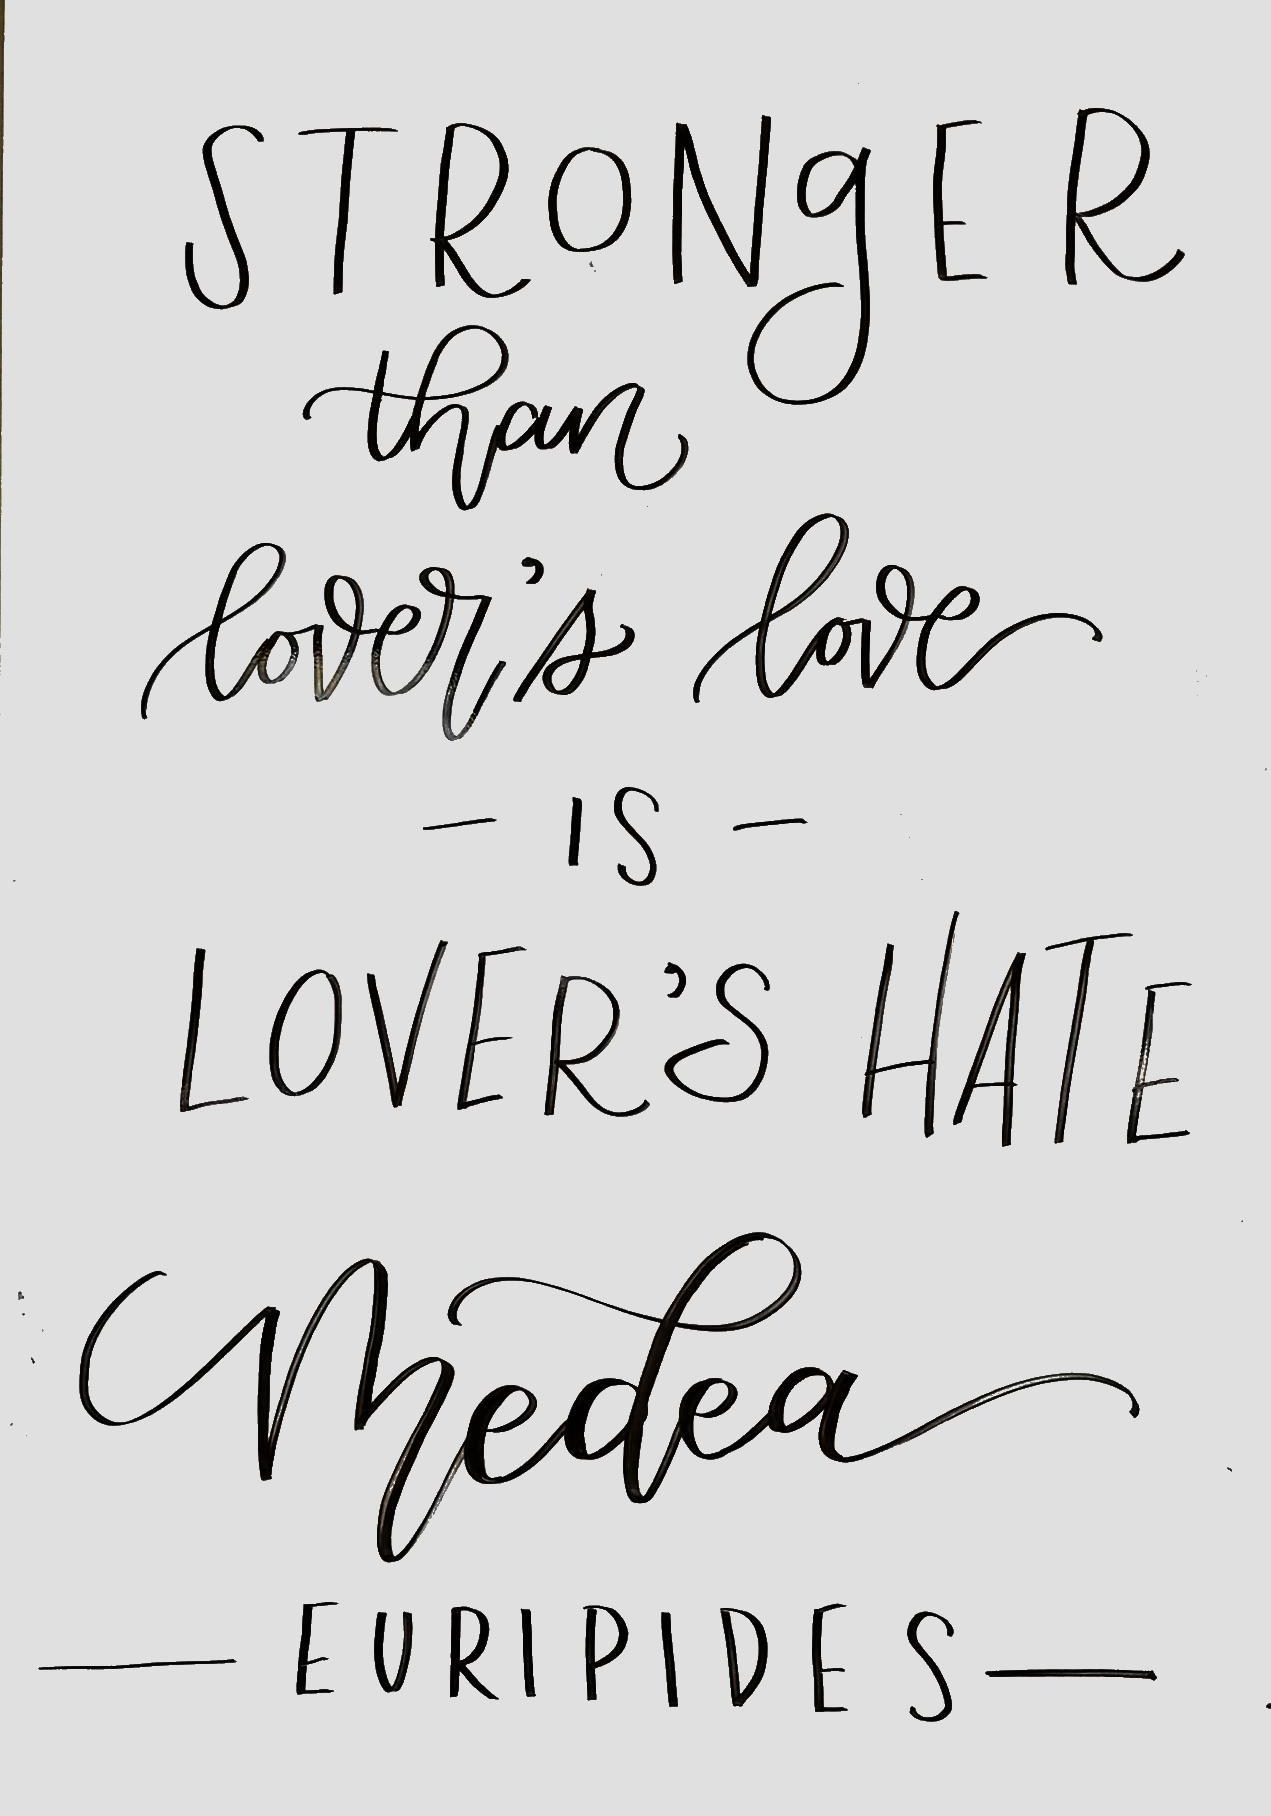 STRONgER
than
lover's love
- IS -
LOVER'S HATE
Medea
— EURIPIDES —